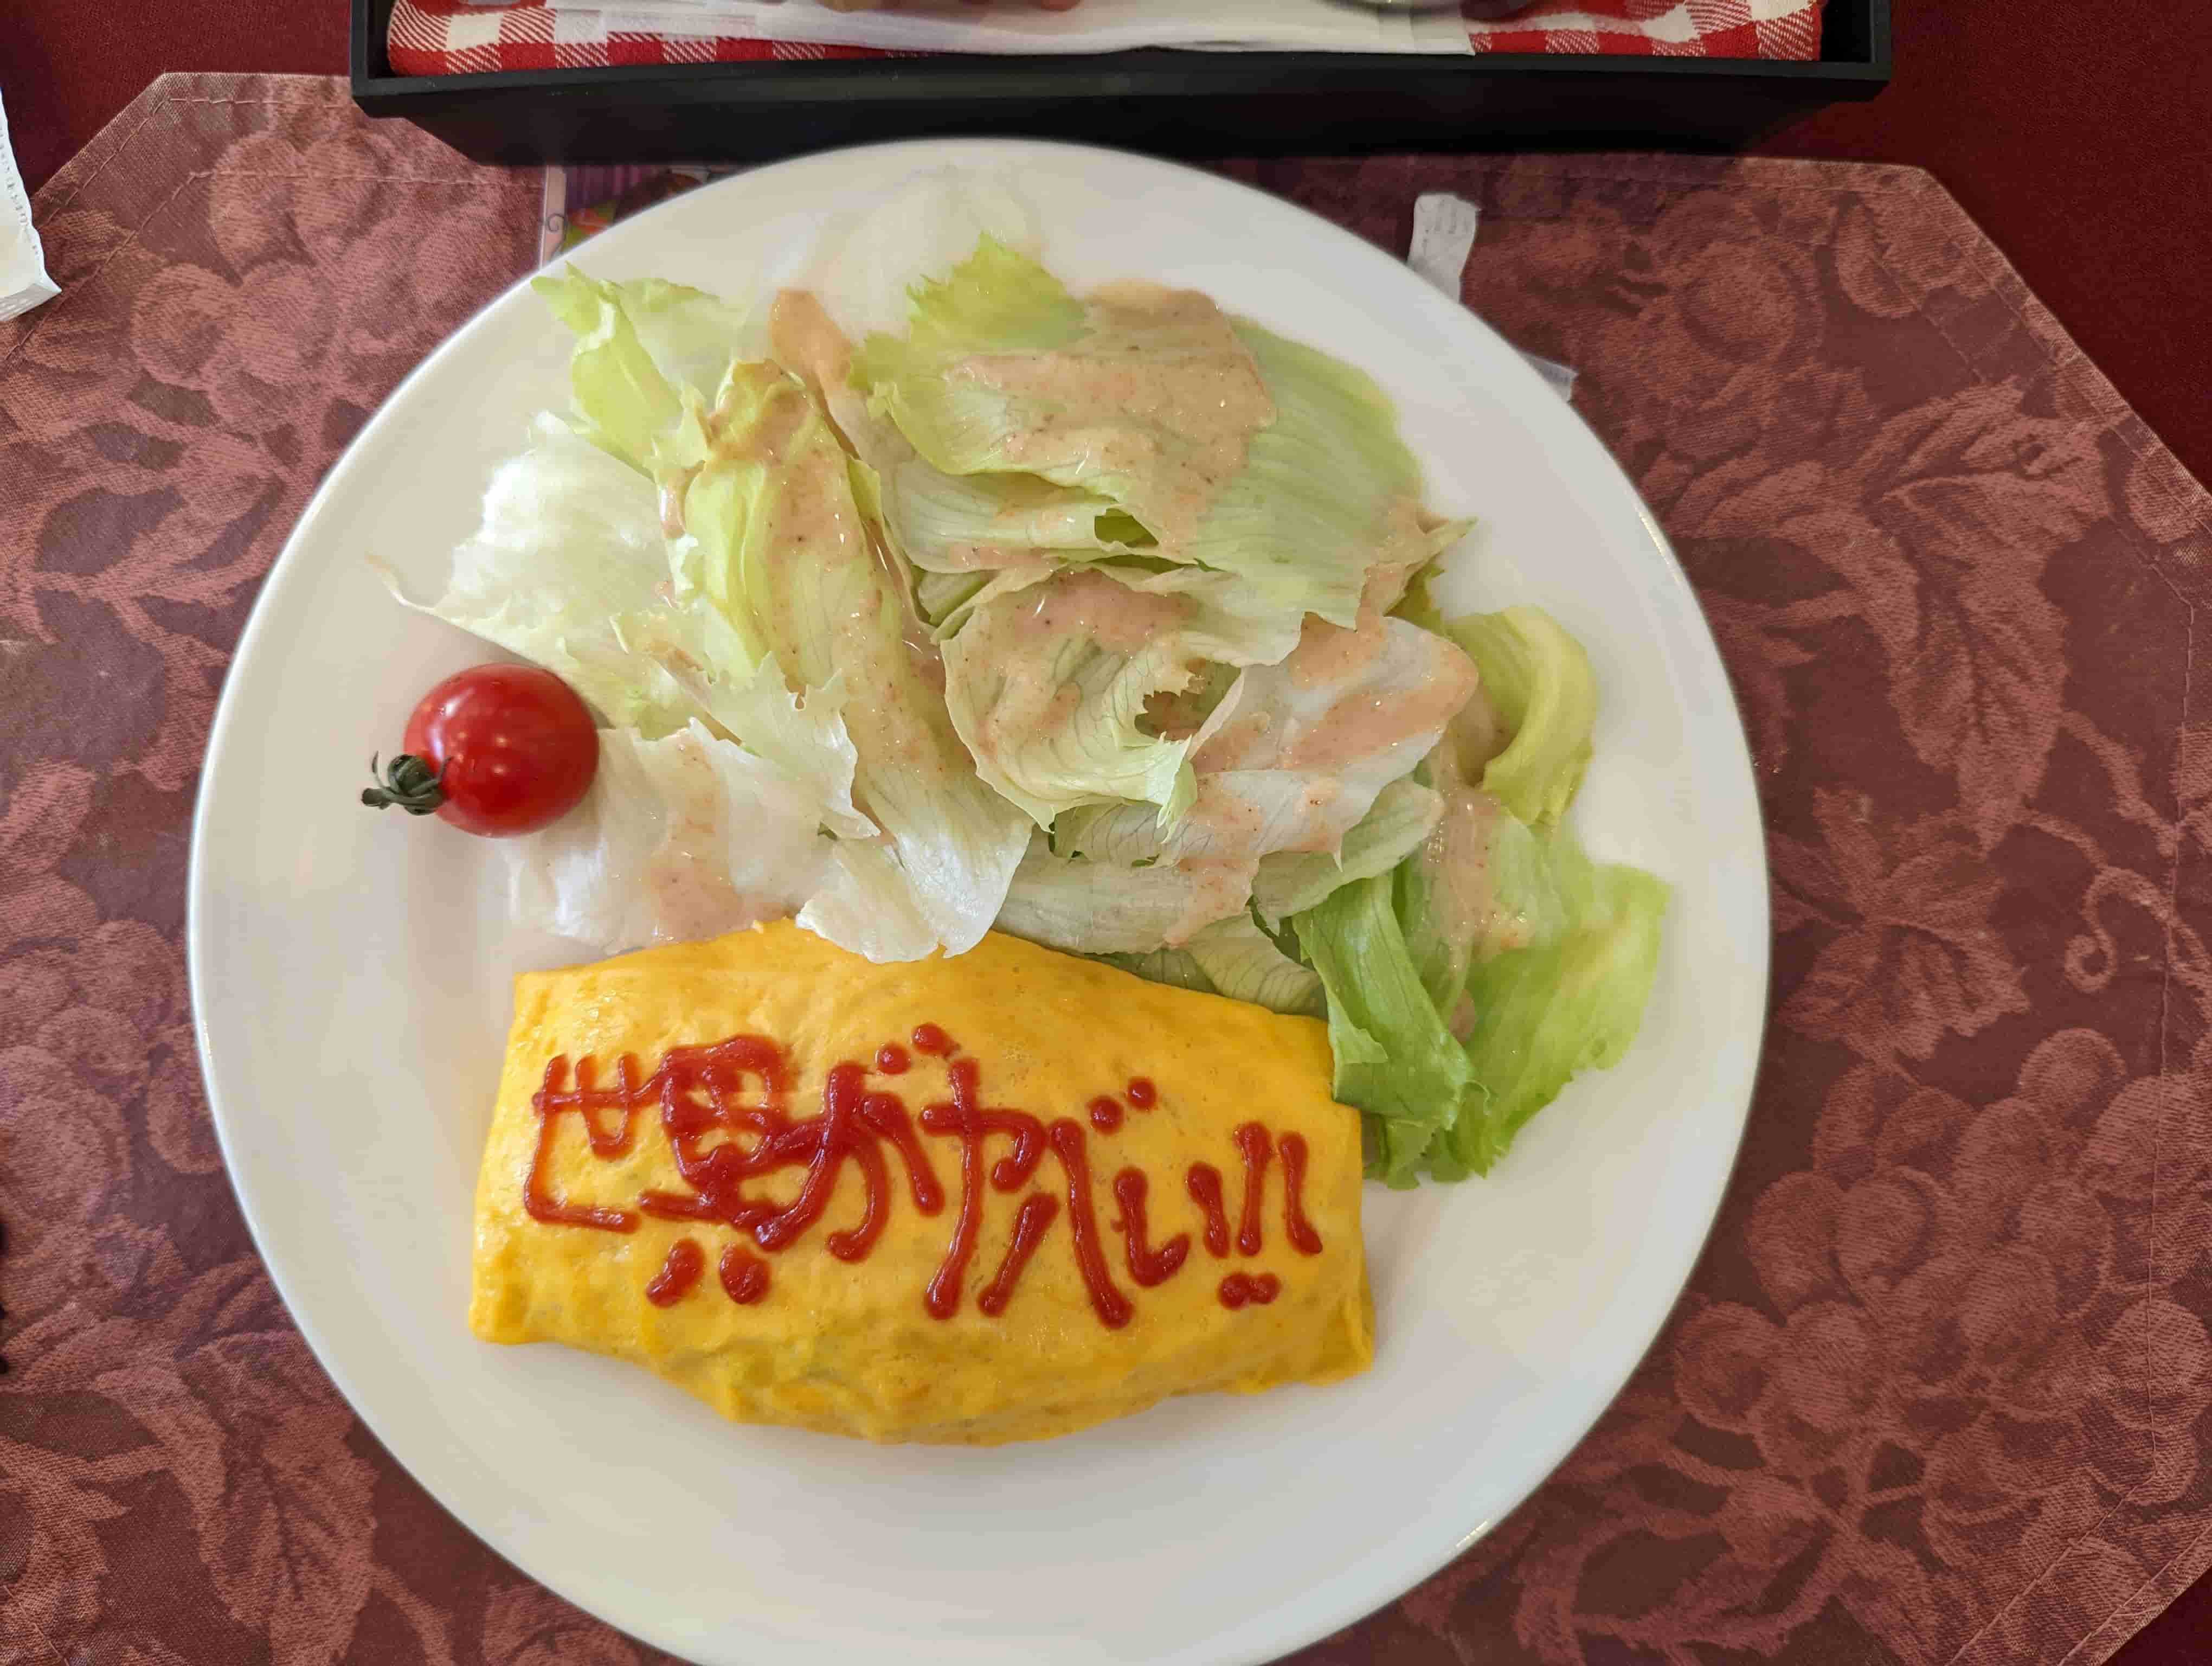 世界がヤバい!!